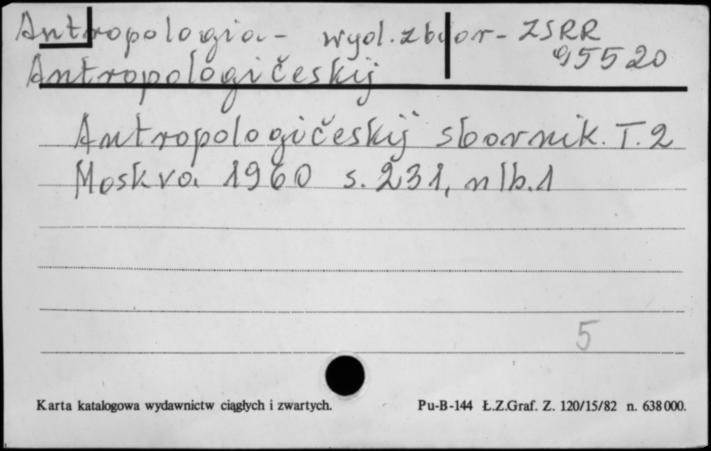 Antropologia - wyd. zbior - ZSRR
95520
Antropologičeskij
Antropologičeskij sbornik. T. 2
Moskva 1960 s. 231, nlb. 1
5
Karta katalogowa wydawnictw ciągłych i zwartych.
Pu-B-144 Ł.Z.Graf. Z. 120/15/82 n. 638000.